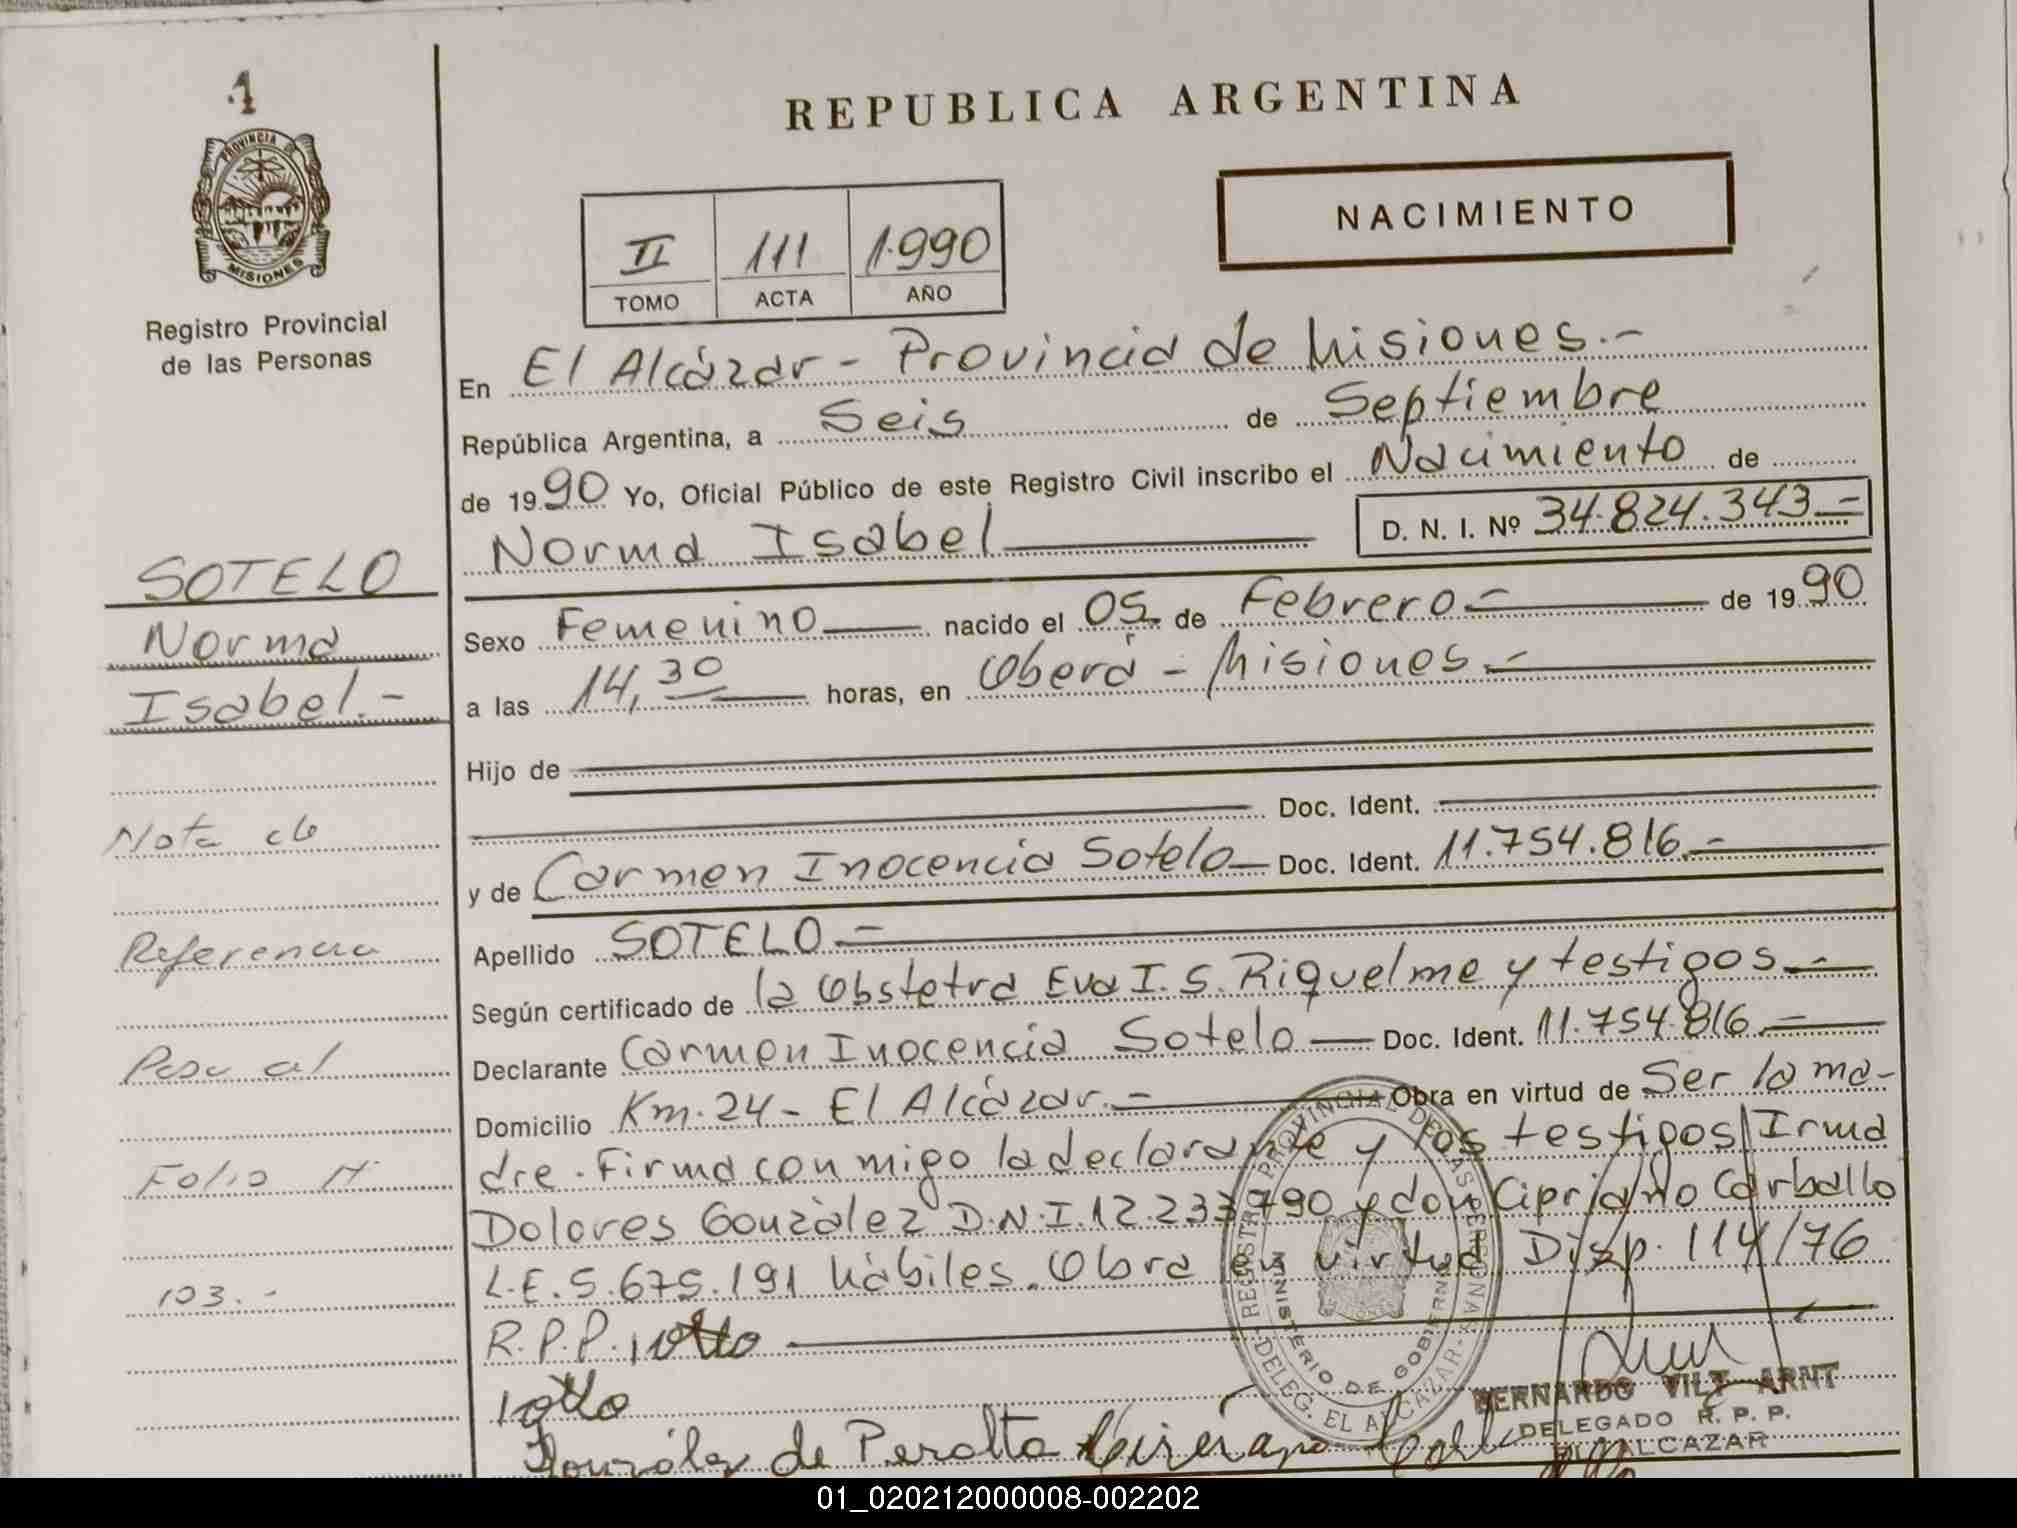 1
PROVINCIA D
MISIONES
Registro Provincial
de las Personas
REPUBLICA ARGENTINA
NACIMIENTO
II 111 1.990
TOMO ACTA AÑO
En El Alcázar - Provincia de Misiones.-
República Argentina, a Seis de Septiembre
de 1990 Yo, Oficial Público de este Registro Civil inscribo el Nacimiento de
Norma Isabel D. N. I. Nº 34.824.343.-
Sexo Femenino nacido el 05 de Febrero.- de 1990
a las 14,30 horas, en Oberá - Misiones.-
Hijo de
Doc. Ident.
y de Carmen Inocencia Sotelo Doc. Ident. 11.754.816.-
Apellido SOTELO.-
Según certificado de la Obstetra Eva I. S. Riquelme y testigos.-
Declarante Carmen Inocencia Sotelo Doc. Ident. 11.754.816.-
Domicilio Km. 24 - El Alcázar.- Obra en virtud de Ser la ma-
dre. Firma conmigo la declarante y los testigos Irma
Dolores González D.N.I. 12.233.790 y don Cipriano Carballo
L.E. 5.675.191 hábiles. Obra en virtud Disp. 114/76
R.P.P.
González de Peralta
SOTELO
Norma
Isabel.-
Nota de
Referencia
Pasa al
Folio Nº
103.-
REGISTRO PROVINCIAL DE LAS PERSONAS
MINISTERIO DE GOBIERNO
DELEG. EL ALCAZAR
BERNARDO VILT ARNT
DELEGADO R. P. P.
EL ALCAZAR
01_020212000008-002202